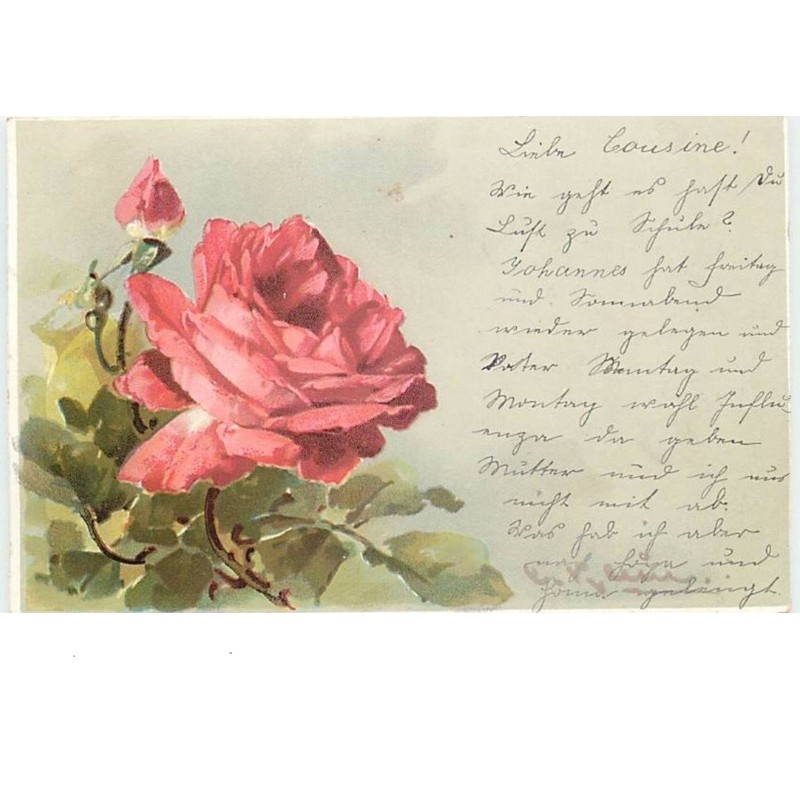 Liebe Cousine!
Wie geht es hast Du
Lust zu Schule?
Johannes hat Freitag
und Sonnabend
wieder gelegen und
Vater Sonntag und
Montag wohl Influ-
enza da geben
Mutter und ich uns
nicht mit ab.
Was hab ich aber
und
gelengt.